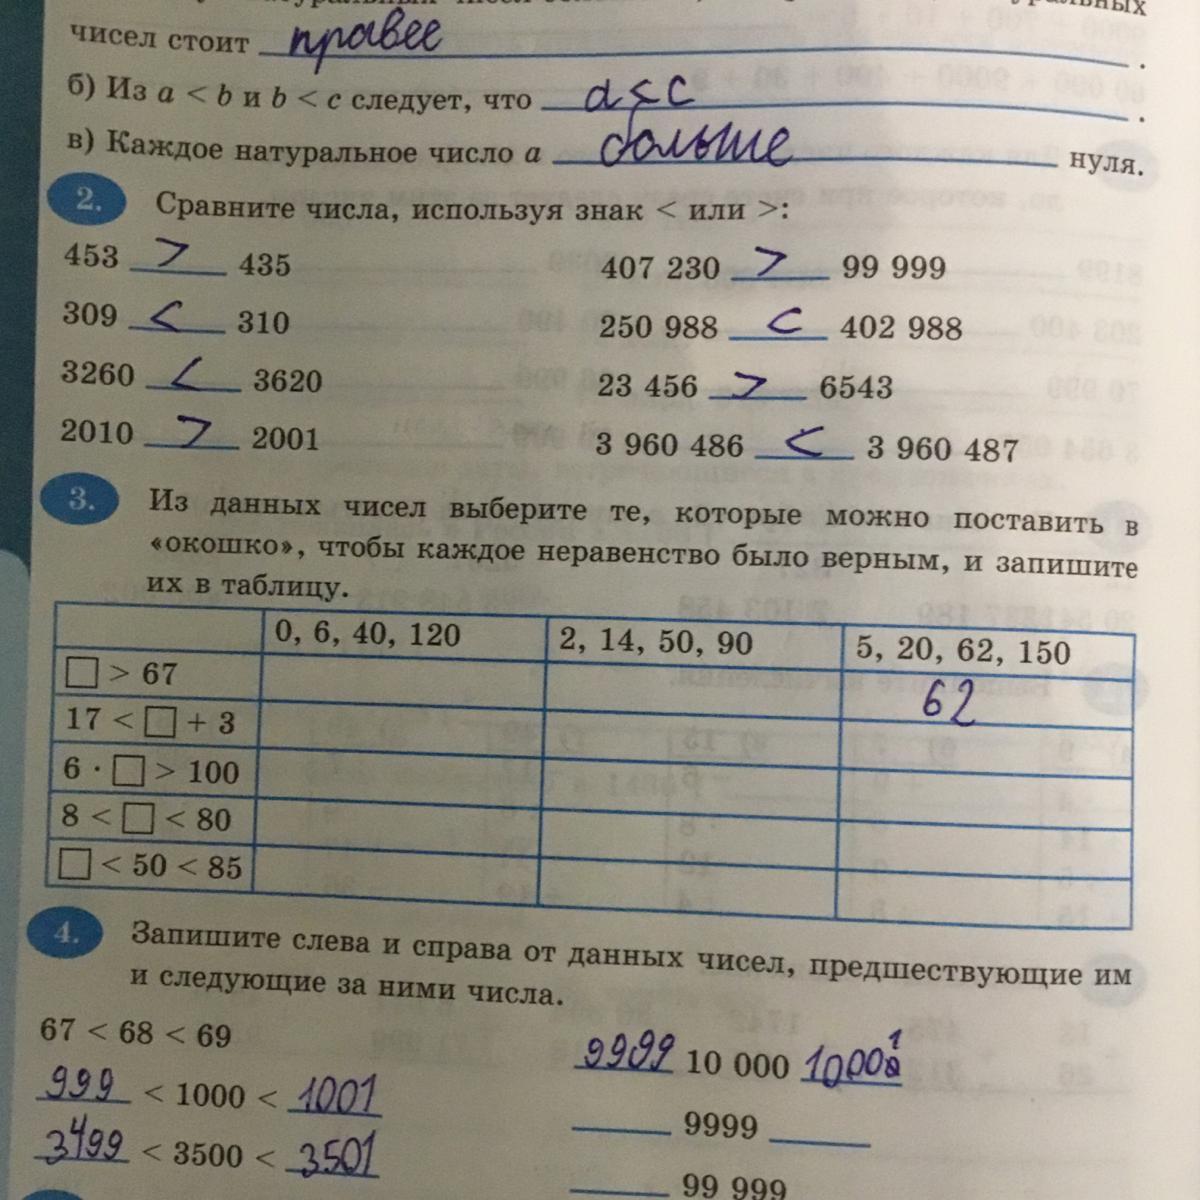 чисел стоит правее.
б) Из a < b и b < c следует, что a < c.
в) Каждое натуральное число a больше нуля.
2. Сравните числа, используя знак < или >:
453 > 435 407 230 > 99 999
309 < 310 250 988 < 402 988
3260 < 3620 23 456 > 6543
2010 > 2001 3 960 486 < 3 960 487
3. Из данных чисел выберите те, которые можно поставить в
«окошко», чтобы каждое неравенство было верным, и запишите
их в таблицу.
0, 6, 40, 120 2, 14, 50, 90 5, 20, 62, 150
□ > 67 62
17 < □ + 3
6 · □ > 100
8 < □ < 80
□ < 50 < 85
4. Запишите слева и справа от данных чисел, предшествующие им
и следующие за ними числа.
67 < 68 < 69 9999 10 000 10001
999 < 1000 < 1001 9999
3499 < 3500 < 3501 99 999